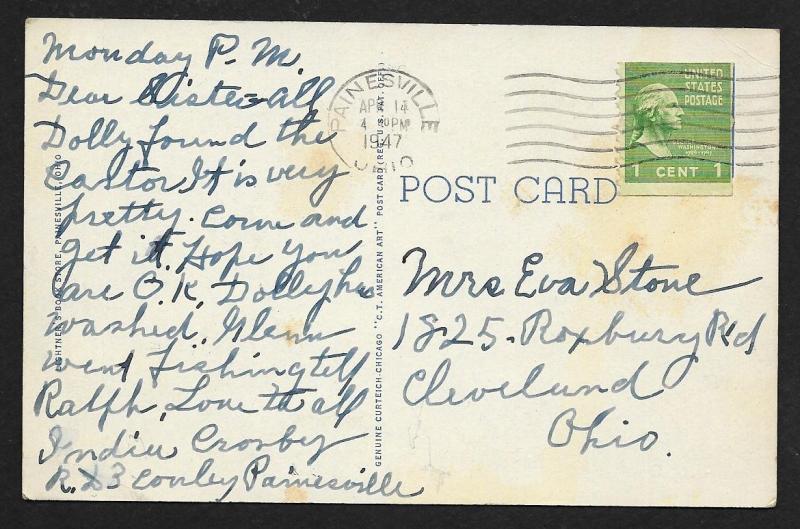 Monday P.M.
Dear Sister & all
Dolly found the
Castor It is very
pretty. Come and
get it. Hope you
are O.K. Dolly has
washed. Glenn
went Fishing tell
Ralph. Love to all
India Crosby
R. D. 3 Conley Painesville
LIGHTNER'S BOOK STORE, PAINESVILLE, OHIO
GENUINE CURTEICH-CHICAGO "C.T. AMERICAN ART" POST CARD (REG. U.S. PAT. OFF.)
PAINESVILLE
APR 14
4 PM
1947
OHIO
UNITED
STATES
POSTAGE
WASHINGTON
1 CENT 1
POST CARD
Mrs Eva Stone
1825. Roxbury Rd
Cleveland
Ohio.